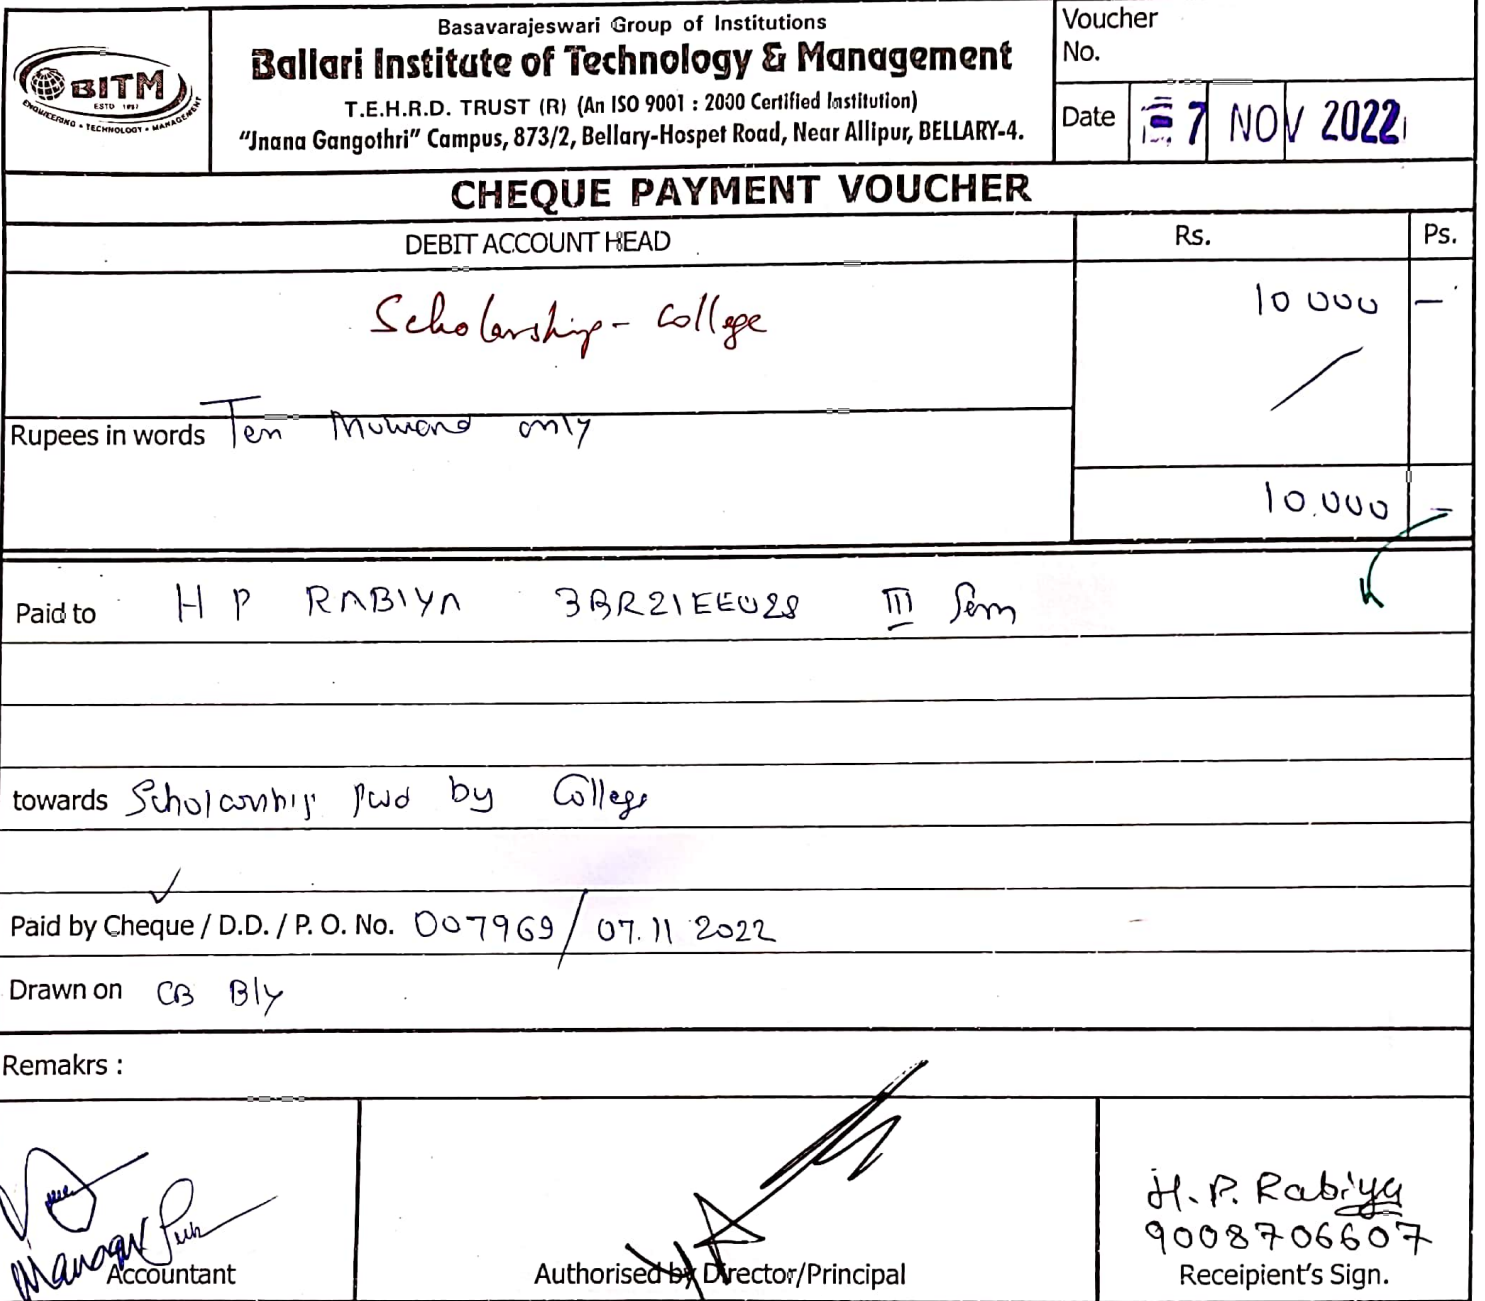 BITM
ESTD 1997
ENGINEERING • TECHNOLOGY • MANAGEMENT
Basavarajeswari Group of Institutions
Ballari Institute of Technology & Management
T.E.H.R.D. TRUST (R) (An ISO 9001 : 2000 Certified Institution)
"Jnana Gangothri" Campus, 873/2, Bellary-Hospet Road, Near Allipur, BELLARY-4.
Voucher
No.
Date 7 NOV 2022
CHEQUE PAYMENT VOUCHER
DEBIT ACCOUNT HEAD Rs. Ps.
Scholarship - College 10 000 —
Rupees in words Ten Thousand only
10.000 —
Paid to H P RABIYA 3BR21EE028 III Sem
towards Scholarship paid by College
Paid by Cheque / D.D. / P. O. No. 007969 / 07.11.2022
Drawn on CB Bly
Remakrs :
Manager
Accountant
Authorised by Director/Principal
H. P. Rabiya
9008706607
Receipient's Sign.